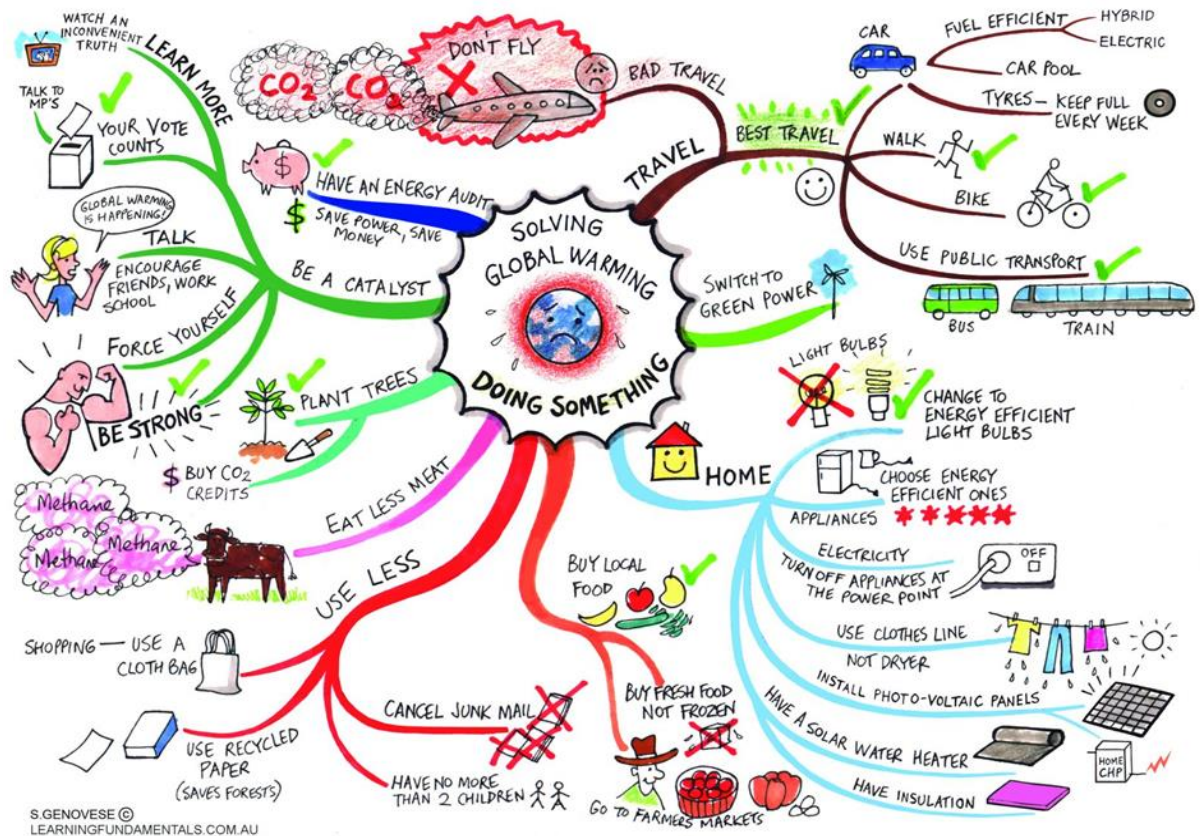 SOLVING
GLOBAL WARMING
DOING SOMETHING
TRAVEL
BAD TRAVEL
DON'T FLY
CO2
CO2
BEST TRAVEL
CAR
FUEL EFFICIENT
HYBRID
ELECTRIC
CAR POOL
TYRES — KEEP FULL
EVERY WEEK
WALK
BIKE
USE PUBLIC TRANSPORT
BUS
TRAIN
SWITCH TO
GREEN POWER
HOME
LIGHT BULBS
CHANGE TO
ENERGY EFFICIENT
LIGHT BULBS
CHOOSE ENERGY
EFFICIENT ONES
APPLIANCES
ELECTRICITY
TURN OFF APPLIANCES AT
THE POWER POINT
OFF
USE CLOTHES LINE
NOT DRYER
INSTALL PHOTO-VOLTAIC PANELS
HOME
CHP
HAVE A SOLAR WATER HEATER
HAVE INSULATION
BUY LOCAL
FOOD
BUY FRESH FOOD
NOT FROZEN
GO TO FARMERS MARKETS
USE LESS
SHOPPING — USE A
CLOTH BAG
USE RECYCLED
PAPER
(SAVES FORESTS)
CANCEL JUNK MAIL
HAVE NO MORE
THAN 2 CHILDREN
EAT LESS MEAT
Methane
Methane
Methane
PLANT TREES
$ BUY CO2
CREDITS
BE A CATALYST
LEARN MORE
WATCH AN
INCONVENIENT
TRUTH
TALK TO
MP'S
YOUR VOTE
COUNTS
GLOBAL WARMING
IS HAPPENING!
TALK
ENCOURAGE
FRIENDS, WORK
SCHOOL
FORCE YOURSELF
BE STRONG
$
HAVE AN ENERGY AUDIT
$
SAVE POWER, SAVE
MONEY
S.GENOVESE ©
LEARNINGFUNDAMENTALS.COM.AU